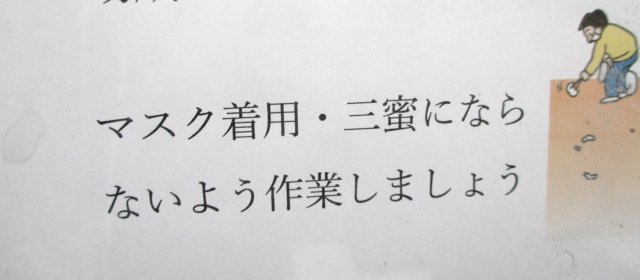 マスク着用・三蜜になら
ないよう作業しましょう